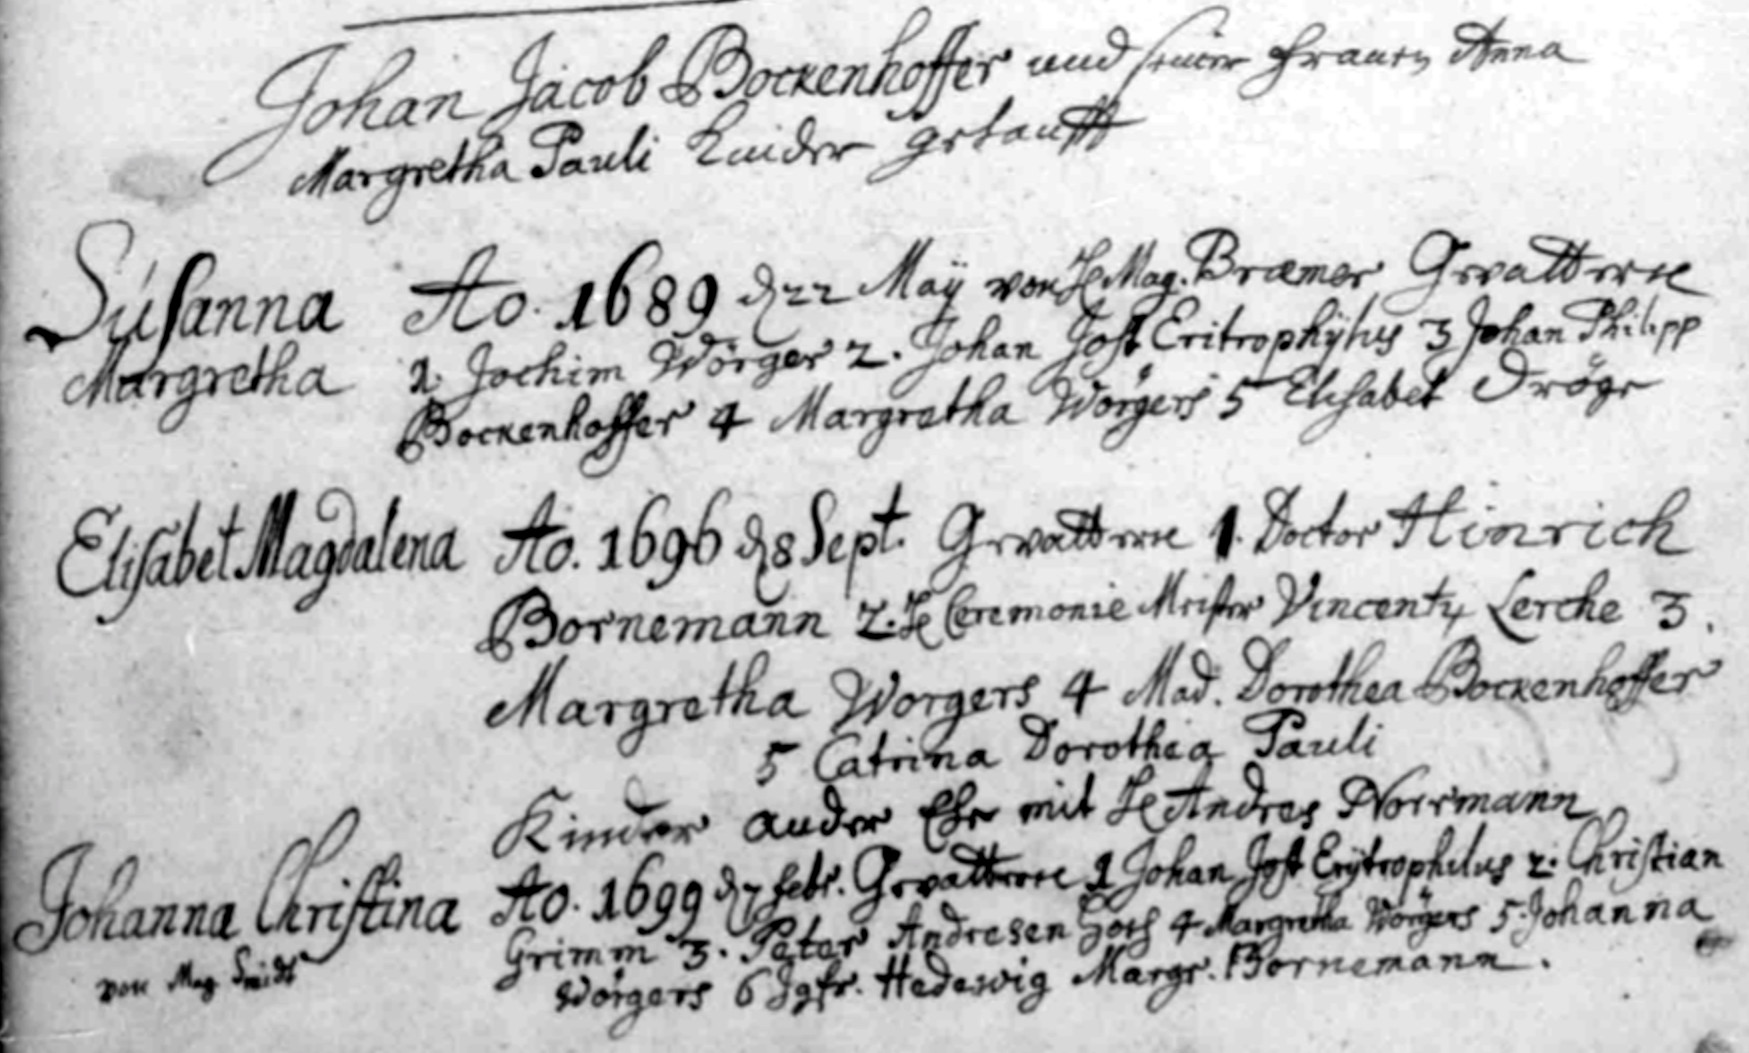 Johan Jacob Bockenhoffer und seiner Frauen Anna
Margretha Pauli Kinder getaufft
Susanna Ao. 1689 d 22 Maÿ von H Mag. Bræmer Gevatteren
Margretha 1. Jochim Wörger 2. Johan Jost Eritrophÿlus 3 Johan Philipp
Bockenhoffer 4 Margretha Wörgers 5 Elisabet Dröge
Elisabet Magdalena Ao. 1696 d 8 Sept. Gevatteren 1. Doctor Hinrich
Bornemann 2. H Ceremonie Meister Vincenty Lerche 3.
Margretha Worgers 4 Mad. Dorothea Bockenhoffer
5 Catrina Dorothea Pauli
Kinder ander Ehe mit H Andres Norrmann
Johanna Christina Ao. 1699 d 7 febr. Gevatteren 1 Johan Jost Erÿtrophilus 2. Christian
von Mag Smidt Grimm 3. Peter Andresen 4 Margretha Wörgers 5. Johanna
Wörgers 6 Jgfr. Hedewig Margr. Bornemann.